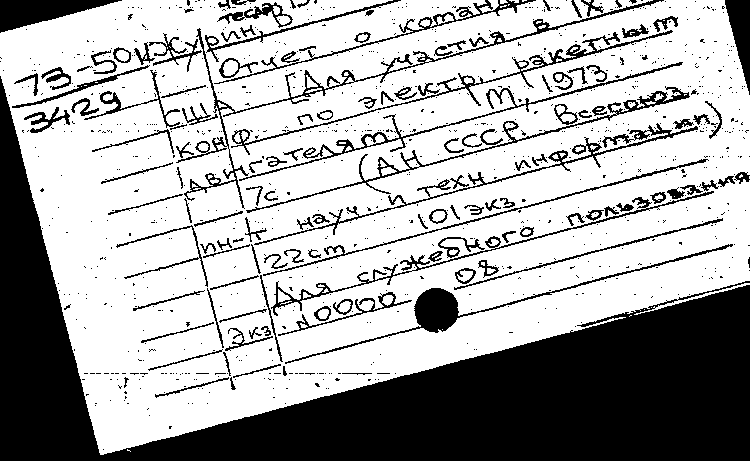 73-50
3429
Журин, В
Отчет о команд
США [Для участия в IX
конф. по электр. ракетным
двигателям]. М, 1973.
7с. (АН СССР. Всесоюз.
ин-т науч. и техн. информации)
22 ст. 101 экз.
Для служебного пользования
Экз. N 0000 08.